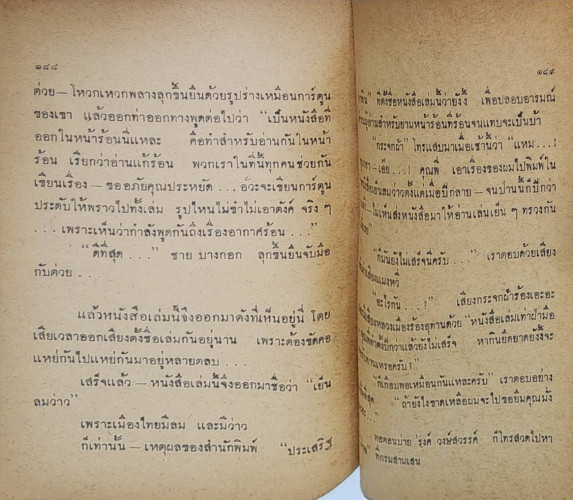 ๑๘๘
ต่วย — โหวกเหวกพลางลุกขึ้นยืนด้วยรูปร่างเหมือนการ์ตูน
ของเขา แล้วออกท่าออกทางพูดต่อไปว่า “เป็นหนังสือที่
ออกในหน้าร้อนนี่แหละ คือทำสำหรับอ่านกันในหน้า
ร้อน เรียกว่าอ่านแก้ร้อน พวกเราในที่นี้ทุกคนช่วยกัน
เขียนเรื่อง — ขออภัยคุณประหยัด . . . อ๊วะจะเขียนการ์ตูน
ประดับให้พราวไปทั้งเล่ม รูปไหนไม่ขำไม่เอาตังค์ จริง ๆ
. . . เพราะเห็นว่ากำลังพูดกันถึงเรื่องอากาศร้อน . . .”
“ดีที่สุด . . .” ชาย บางกอก ลุกขึ้นยืนจับมือ
กับต่วย . . .
แล้วหนังสือเล่มนี้จึงออกมาดังที่เห็นอยู่นี่ โดย
เสียเวลาออกเสียงตั้งชื่อเล่มกันอยู่นาน เพราะต้องขัดคอ
แหย่กันไปแหย่กันมาอยู่หลายตลบ . . .
เสร็จแล้ว — หนังสือเล่มนี้จึงออกมาชื่อว่า “เย็น
ลมว่าว”
เพราะเมืองไทยมีลม และมีว่าว
ก็เท่านั้น — เหตุผลของสำนักพิมพ์ “ประเสริ
๑๘๙
ที่ตั้งชื่อหนังสือเล่มนี้ว่ายังงี้ เพื่อปลอบอารมณ์
อ่านสำหรับยามหน้าร้อนที่ร้อนจนแทบจะเป็นบ้า
“กระจกฝ้า” โทรแสบมาเมื่อเช้านี้ว่า “แหม . . . !
เอ๊ย . . . ! คุณพี่ เอาเรื่องของผมไปพิมพ์ใน
ตั้งแต่เมื่อปีกลาย — จนป่านนี้ก็ปีกว่า
ไม่เห็นส่งหนังสือมาให้อ่านเล่นเย็น ๆ ทรวงกัน
“ก็มันยังไม่เสร็จนี่ครับ . . .” เราตอบด้วยเสียง
“อะไรกัน . . . ?” เสียงกระจกฝ้าร้องเอะอะ
ร้องอุทานด้วย “หนังสือเล่มเท่าฝ่ามือ
แล้วยังไม่เสร็จ หากินยืดยาดยังงี้จะ
“ก็เกือบพอเหมือนกันแหละครับ” เราตอบอย่าง
“ถ้ายังไงขาดเหลือผมจะไปขอยืมคุณมั่ง
พอตอนบ่าย ’รงค์ วงษ์สวรรค์ ก็โทรสวดไปหา
ที่กรมสามเสน